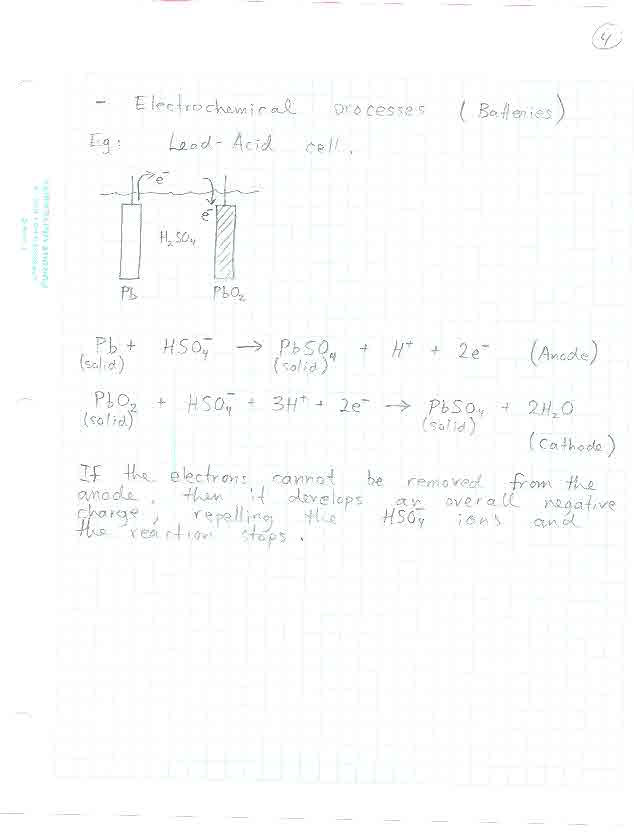 4
- Electrochemical processes (Batteries)
Eg: Lead-Acid cell.
e⁻
e⁻
H₂SO₄
Pb PbO₂
Pb + HSO₄⁻ → PbSO₄ + H⁺ + 2e⁻ (Anode)
(solid) (solid)
PbO₂ + HSO₄⁻ + 3H⁺ + 2e⁻ → PbSO₄ + 2H₂O
(solid) (solid)
(Cathode)
If the electrons cannot be removed from the
anode, then it develops an overall negative
charge, repelling the HSO₄⁻ ions and
the reaction stops.